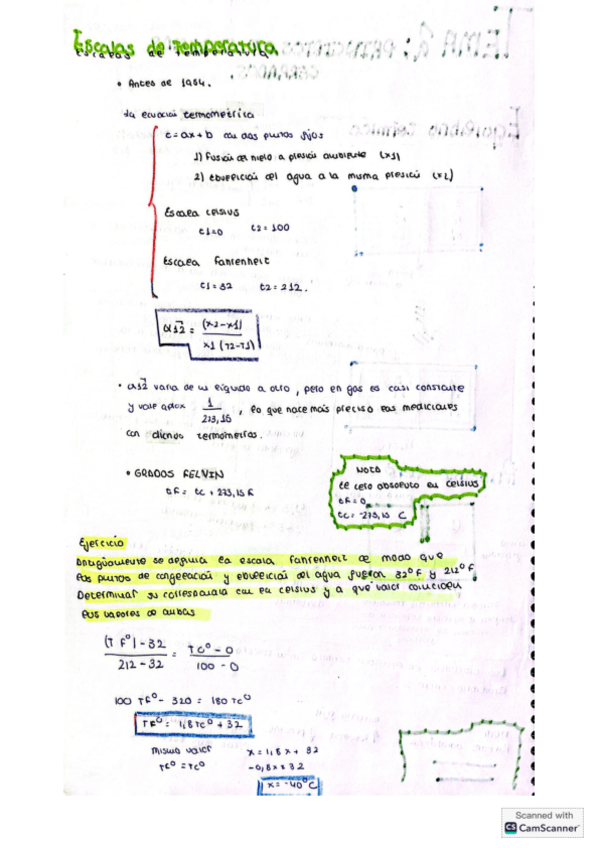 Escalas de temperatura
• Antes de 1954.
la ecuación termometrica
t = ax + b con dos puntos fijos
1) fusión del hielo a presión ambiente (x1)
2) ebullición del agua a la misma presión (x2)
Escala celsius
t1=0 t2=100
Escala Fahrenheit
t1=32 t2=212.
α12 = (x2-x1) / x1 (T2-T1)
• α12 varia de un líquido a otro, pero en gas es casi constante
y vale aprox 1/273,15, lo que hace más preciso las mediciones
con dichos termómetros.
• GRADOS KELVIN
tK = tc + 273,15 K
NOTA
el cero absoluto en celsius
tK = 0
tc = -273,15 C
Ejercicio
Antiguamente se definía la escala Fahrenheit de modo que
los puntos de congelación y ebullición del agua fueran 32°F y 212°F
Determinar su correspondencia en celsius y a que valor coinciden
los valores de ambas
(TF°) - 32 / 212 - 32 = TC° - 0 / 100 - 0
100 TF° - 320 = 180 TC°
TF° = 1,8 TC° + 32
mismo valor x = 1,8 x + 32
TF° = TC° -0,8x = 32
x = -40°C
Scanned with
CS CamScanner